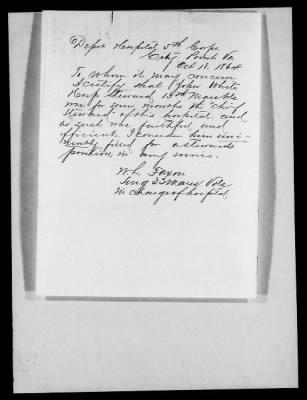 Depot Hospital 5th Corps
City Point Va
Oct 13. 1864
To whom it may concern
I certify that John White
Hosp Steward 13th Mass Vols
was for some months the chief
steward of this hospital and
as such was faithful and
efficient. I consider him emi-
nently fitted for a stewards
position in any service.
W. L. Faxon
Surg 32 Mass Vols
in charge of hospital